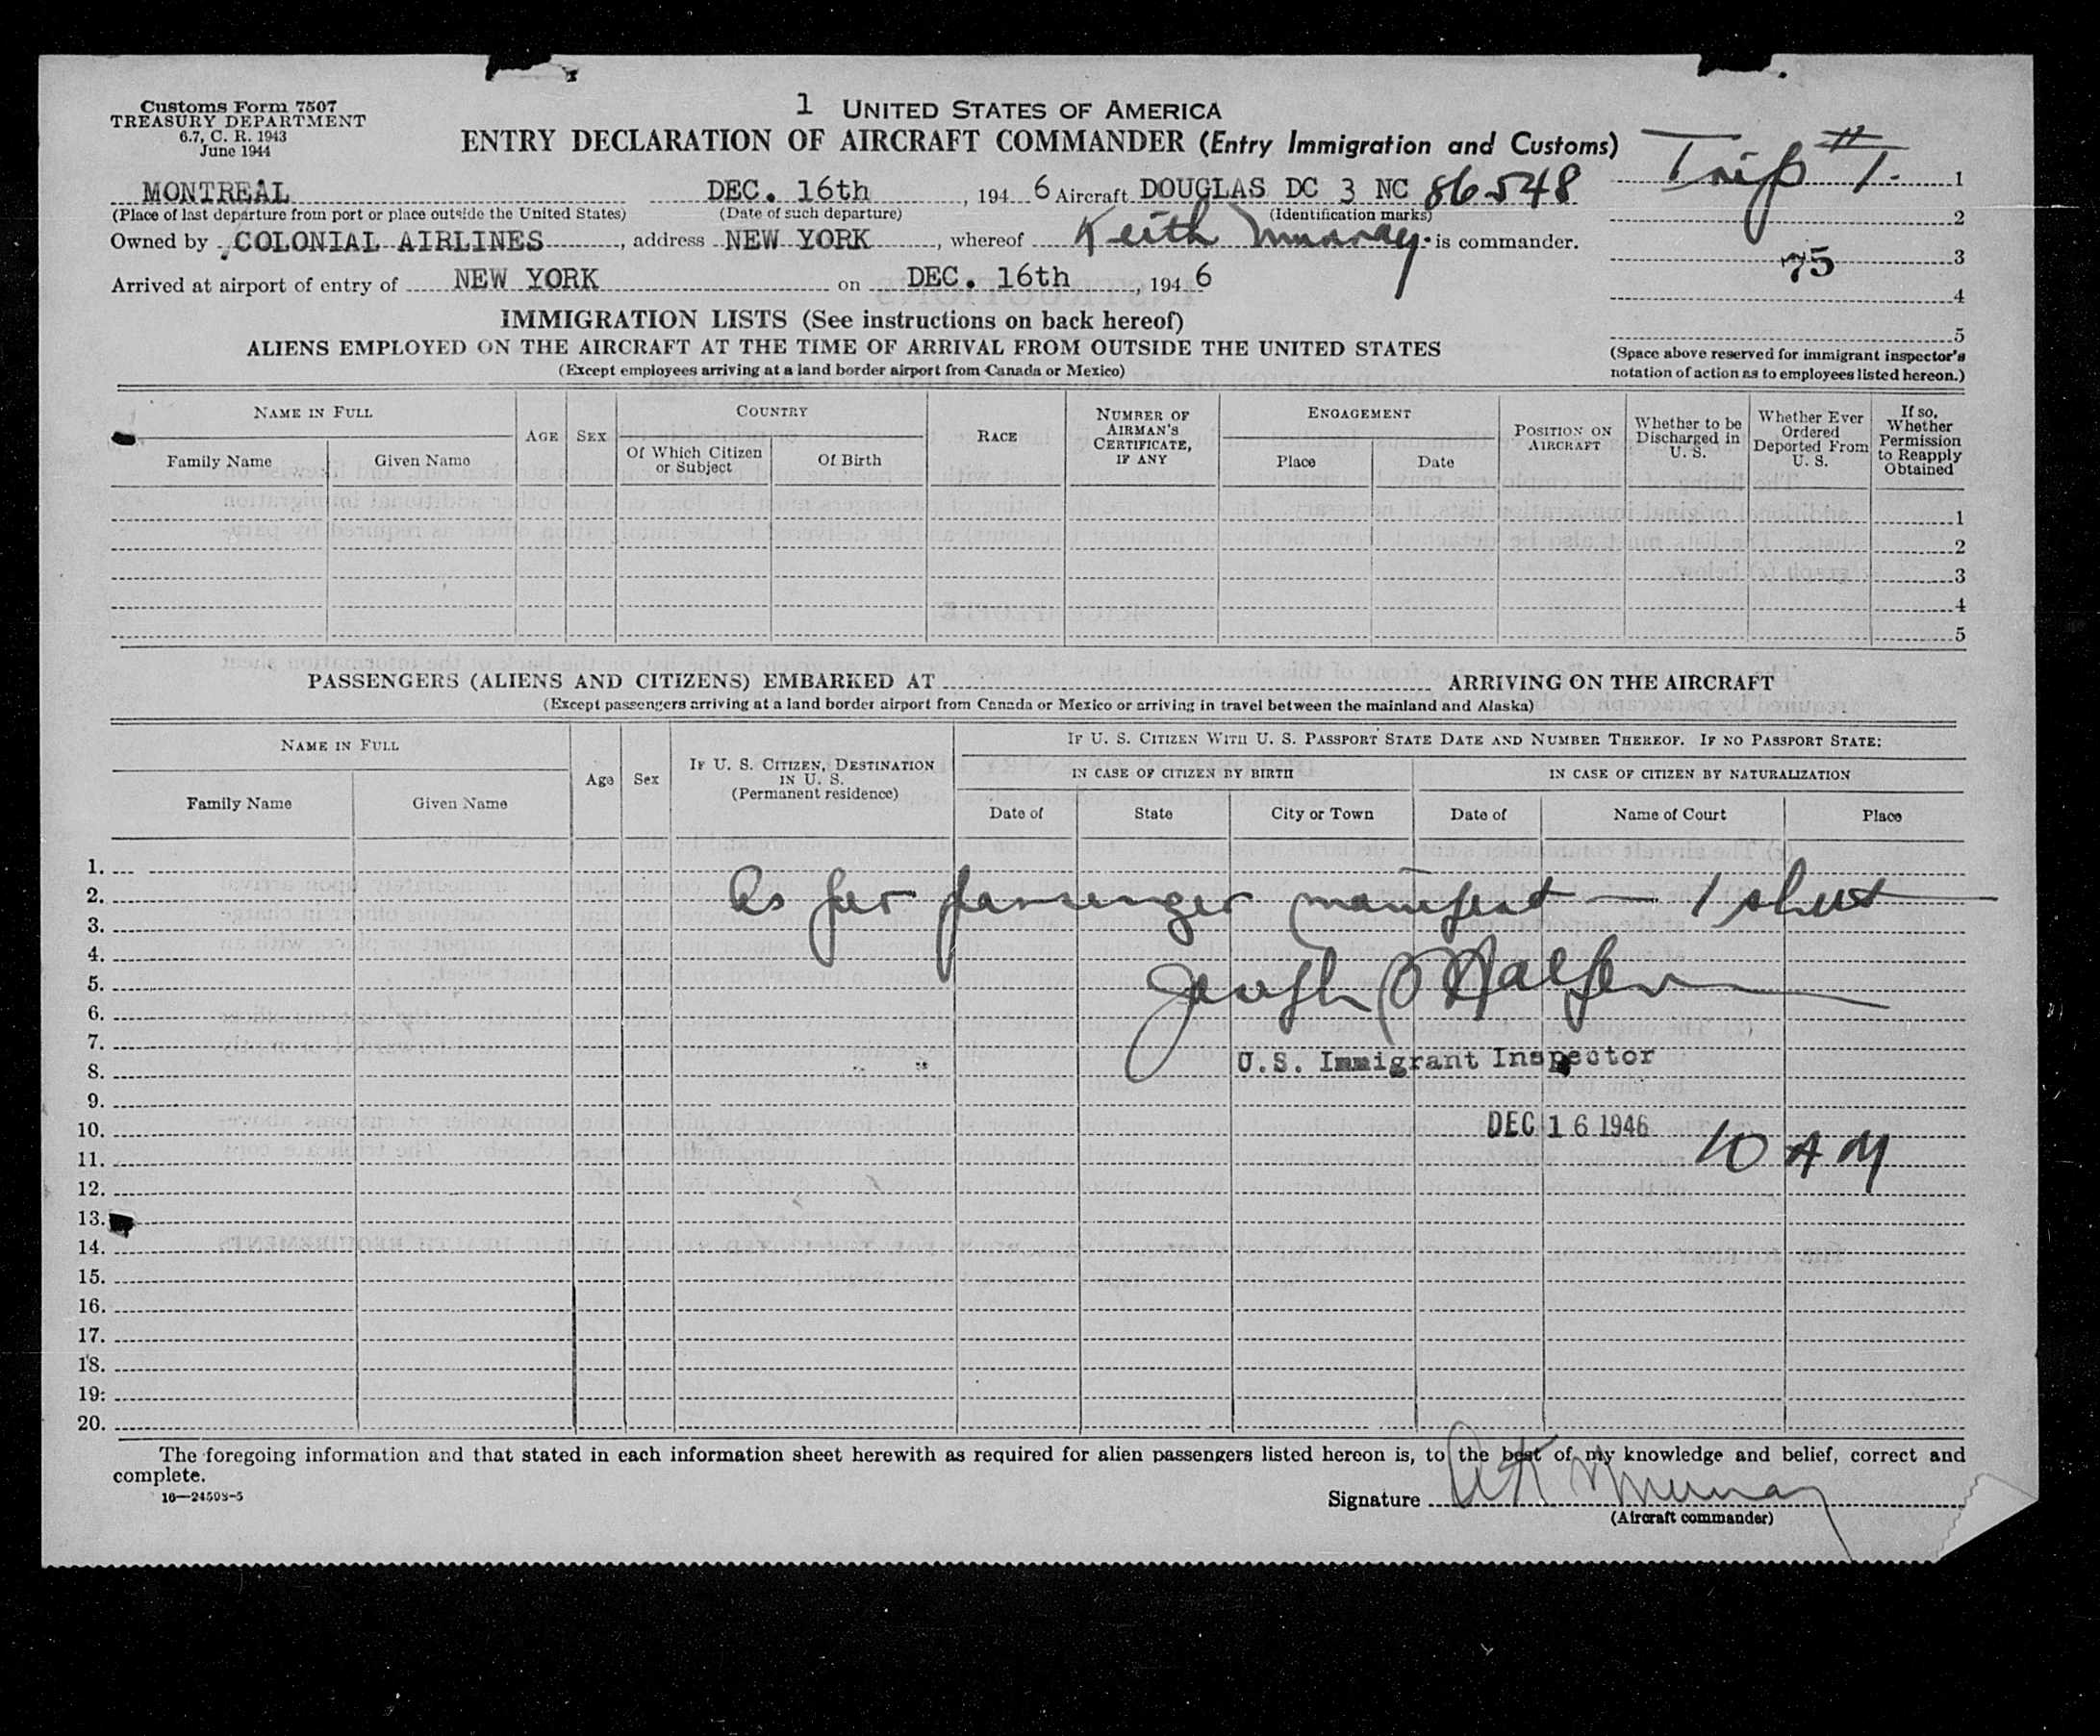 Customs Form 7507
TREASURY DEPARTMENT
6.7, C. R. 1943
June 1944
1 UNITED STATES OF AMERICA
ENTRY DECLARATION OF AIRCRAFT COMMANDER (Entry Immigration and Customs)
Trip # 1.
MONTREAL DEC. 16th, 1946 Aircraft DOUGLAS DC 3 NC 86548
(Place of last departure from port or place outside the United States) (Date of such departure) (Identification marks)
Owned by COLONIAL AIRLINES, address NEW YORK, whereof Keith Murray. is commander.
Arrived at airport of entry of NEW YORK on DEC. 16th, 1946
1
2
75 3
4
5
(Space above reserved for immigrant inspector's
notation of action as to employees listed hereon.)
IMMIGRATION LISTS (See instructions on back hereof)
ALIENS EMPLOYED ON THE AIRCRAFT AT THE TIME OF ARRIVAL FROM OUTSIDE THE UNITED STATES
(Except employees arriving at a land border airport from Canada or Mexico)
NAME IN FULL
Family Name Given Name
AGE
SEX
COUNTRY
Of Which Citizen
or Subject
Of Birth
RACE
NUMBER OF
AIRMAN'S
CERTIFICATE,
IF ANY
ENGAGEMENT
Place Date
POSITION ON
AIRCRAFT
Whether to be
Discharged in
U. S.
Whether Ever
Ordered
Deported From
U. S.
If so,
Whether
Permission
to Reapply
Obtained
1
2
3
4
5
PASSENGERS (ALIENS AND CITIZENS) EMBARKED AT ARRIVING ON THE AIRCRAFT
(Except passengers arriving at a land border airport from Canada or Mexico or arriving in travel between the mainland and Alaska)
NAME IN FULL
Family Name Given Name
Age
Sex
IF U. S. CITIZEN, DESTINATION
IN U. S.
(Permanent residence)
IF U. S. CITIZEN WITH U. S. PASSPORT STATE DATE AND NUMBER THEREOF. IF NO PASSPORT STATE:
IN CASE OF CITIZEN BY BIRTH IN CASE OF CITIZEN BY NATURALIZATION
Date of State City or Town Date of Name of Court Place
1.
2. As per passenger manifest — 1 sheet
3.
4.
5. Joseph
6.
7.
8. U.S. Immigrant Inspector
9.
10. DEC 16 1946
11. 10 AM
12.
13.
14.
15.
16.
17.
18.
19.
20.
The foregoing information and that stated in each information sheet herewith as required for alien passengers listed hereon is, to the best of my knowledge and belief, correct and
complete.
16—24593-5
Signature AK Murray
(Aircraft commander)